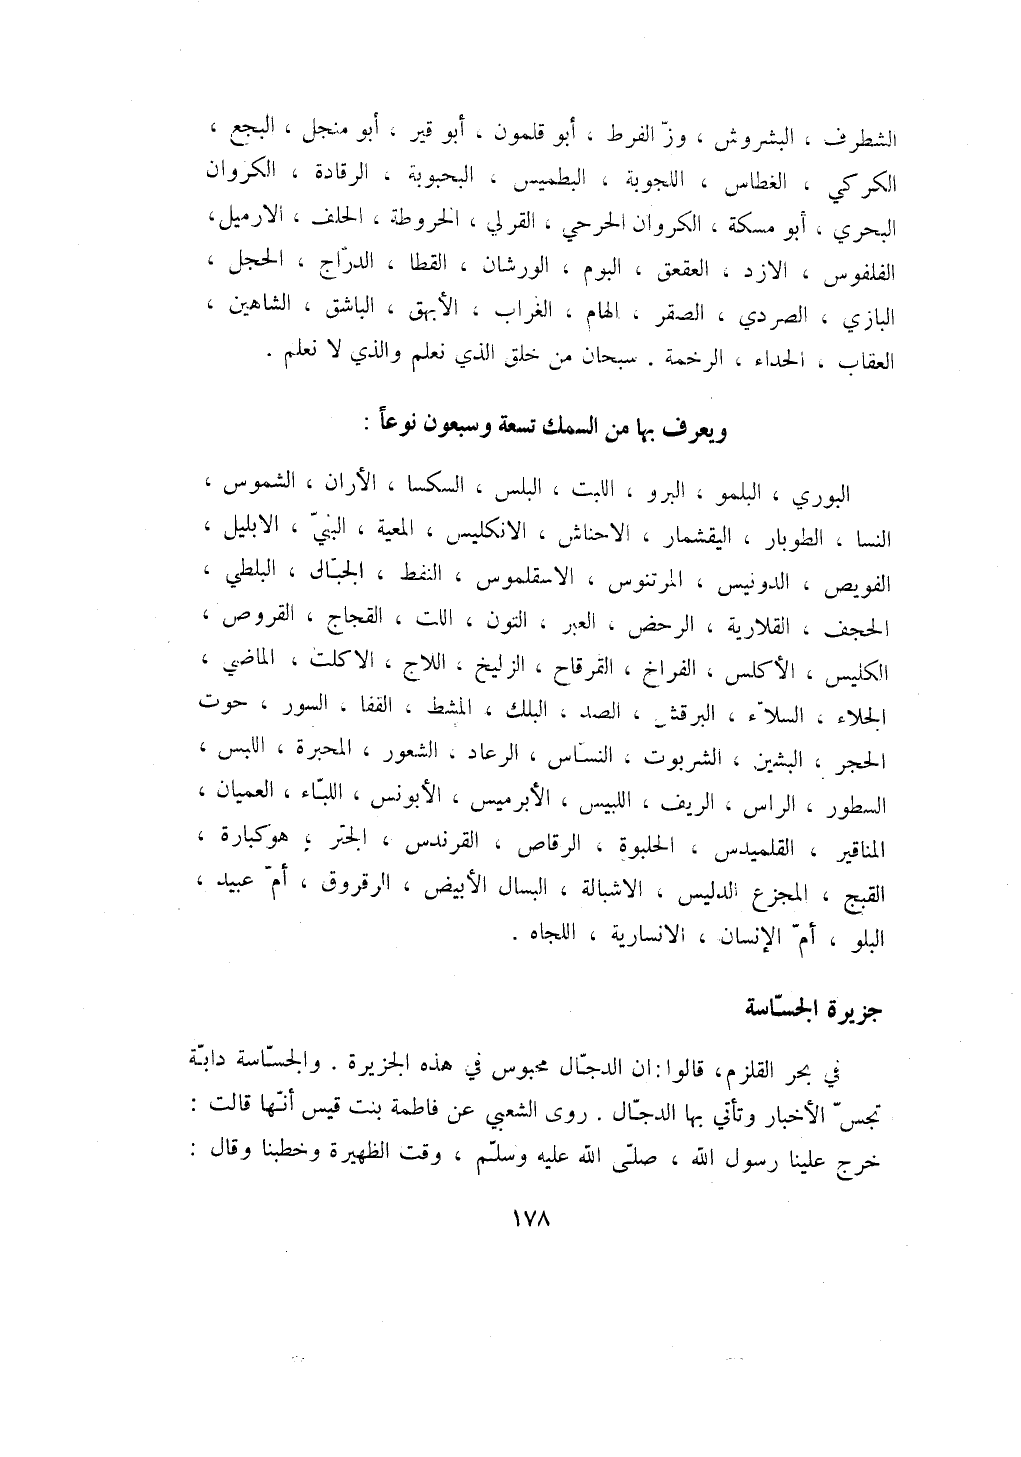 الشطرف ، البشروش ، وزّ الفرط ، أبو قلمون ، أبو قير ، أبو منجل ، البجع ،
الكركي ، الغطاس ، اللجوبة ، البطميس ، البحبوبة ، الرقادة ، الكروان
البحري ، أبو مسكة ، الكروان الحرحي ، القرلي ، الخروطة ، الحلف ، الارميل،
القلقوس ، الازد ، العقعق ، البوم ، الورشان ، القطا ، الدرّاج ، الحجل ،
البازي ، الصردي ، الصقر ، الهام ، الغراب ، الأبهق ، الباشق ، الشاهين ،
العقاب ، الحداء ، الرخمة . سبحان من خلق الذي نعلم والذي لا نعلم .
ويعرف بها من السمك تسعة وسبعون نوعاً :
البوري ، البلمو ، البرو ، اللبت ، البلس ، السكسا ، الأران ، الشموس ،
النسا ، الطوبار ، اليقشمار ، الاحناش ، الانكليس ، المعية ، البنيّ ، الابليل ،
الفويص ، الدونيس ، المرتنوس ، الاسقلموس ، النفط ، الجبّال ، البلطي ،
الحجف ، القلارية ، الرحض ، العبر ، التون ، اللت ، القجاج ، القروص ،
الكليس ، الأكلس ، الفراخ ، القرقاح ، الزليخ ، اللاج ، الاكلت ، الماضي ،
الجلاء ، السلاّء ، البرقش ، الصد ، البلك ، المشط ، القفا ، السور ، حوت
الحجر ، البشين ، الشربوت ، النسّاس ، الرعاد ، الشعور ، المحبرة ، اللبس ،
السطور ، الراس ، الريف ، اللبيس ، الأبرميس ، الأبونس ، اللبّاء ، العميان ،
المناقير ، القلميدس ، الحلبوة ، الرقاص ، القرندس ، الجتر ، هوكبارة ،
القبج ، المجزع الدليس ، الاشبالة ، البسال الأبيض ، الرقروق ، أمّ عبيد ،
البلو ، أمّ الإنسان ، الانسارية ، اللجاه .
جزيرة الجسّاسة
في بحر القلزم، قالوا:ان الدجّال محبوس في هذه الجزيرة . والجسّاسة دابّة
تجسّ الأخبار وتأتي بها الدجّال . روى الشعبي عن فاطمة بنت قيس أنّها قالت :
خرج علينا رسول الله ، صلّى الله عليه وسلّم ، وقت الظهيرة وخطبنا وقال :
١٧٨